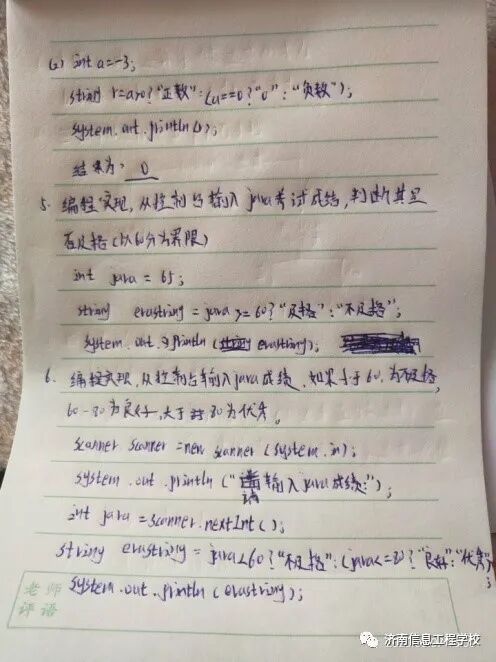 (2) int a=-3;
string r=a>0?"正数":(a==0?"0":"负数");
system.out.println(r);
结果为: 0
5. 编程实现,从控制台输入java考试成绩,判断其是
否及格(以60分为界限)
int java = 65;
string erastring = java >= 60?"及格":"不及格";
system.out.println( erastring);
6. 编程实现,从控制台输入java成绩,如果小于60,为不及格,
60-80为良好,大于80为优秀。
scanner scanner =new scanner (system.in);
system.out.println ("请输入java成绩:");
int java =scanner.nextInt();
string erastring = java<60?"不及格":(java<=80?"良好":"优秀");
system.out.println (erastring);
老师
评语
济南信息工程学校